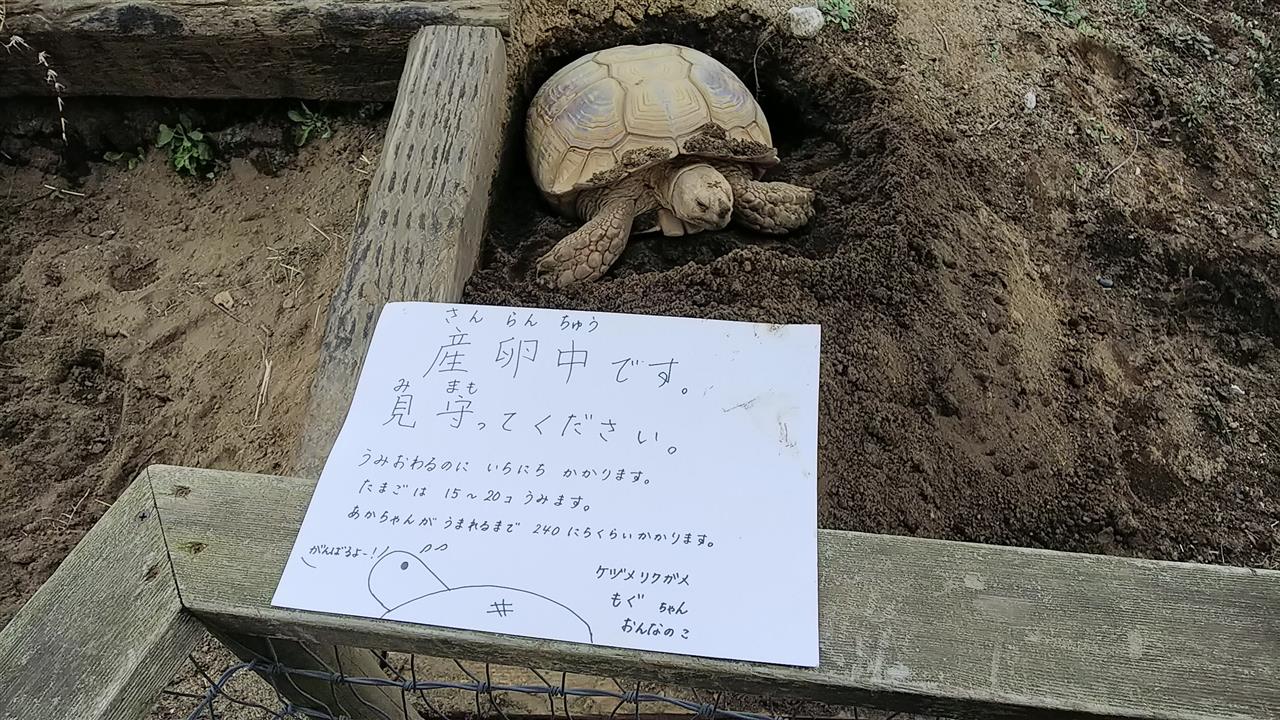 さん らん ちゅう
産卵中です。
み まも
見守ってください。
うみおわるのに いちにち かかります。
たまごは 15〜20コ うみます。
あかちゃんが うまれるまで 240にちくらいかかります。
がんばるよー!
ケヅメリクガメ
もぐ ちゃん
おんなのこ